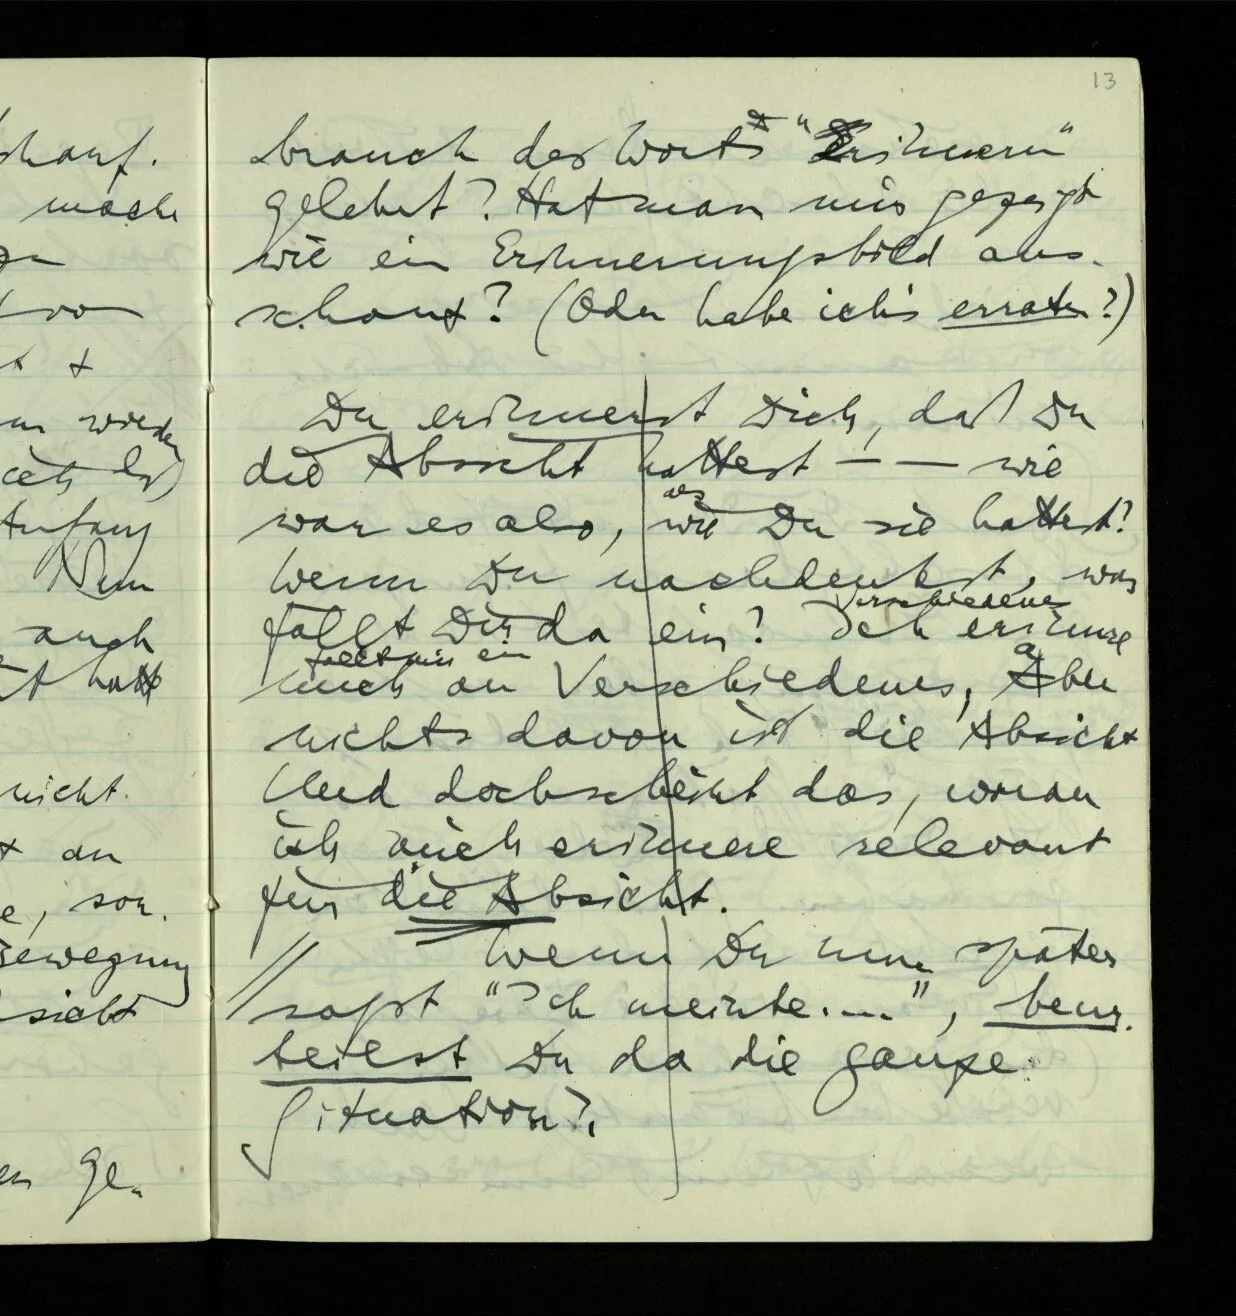 13
schauf.
mache
wieder
Anfang
Nun
auch
hatte
nicht.
an
, son-
Bewegung
sieht
Ge-
brauch des Worts "Erinnern"
gelehrt? Hat man mir gezeigt
wie ein Erinnerungsbild aus-
schaut? (Oder habe ich's erraten?)
Du erinnerst Dich, daß Du
die Absicht hattest — — wie
war es also, wie Du sie hattest?
als
Wenn Du nachdenkst, was
fällt Dir da ein? Ich erinnre
Verschiedenes
fällt mir ein
mich an Verschiedenes, Aber
a
nichts davon ist die Absicht
Und doch scheint das, woran
ich mich erinnere relevant
für die Absicht.
// Wenn Du nun später
sagst "Ich meinte....", beur-
teilst Du da die ganze
Situation?